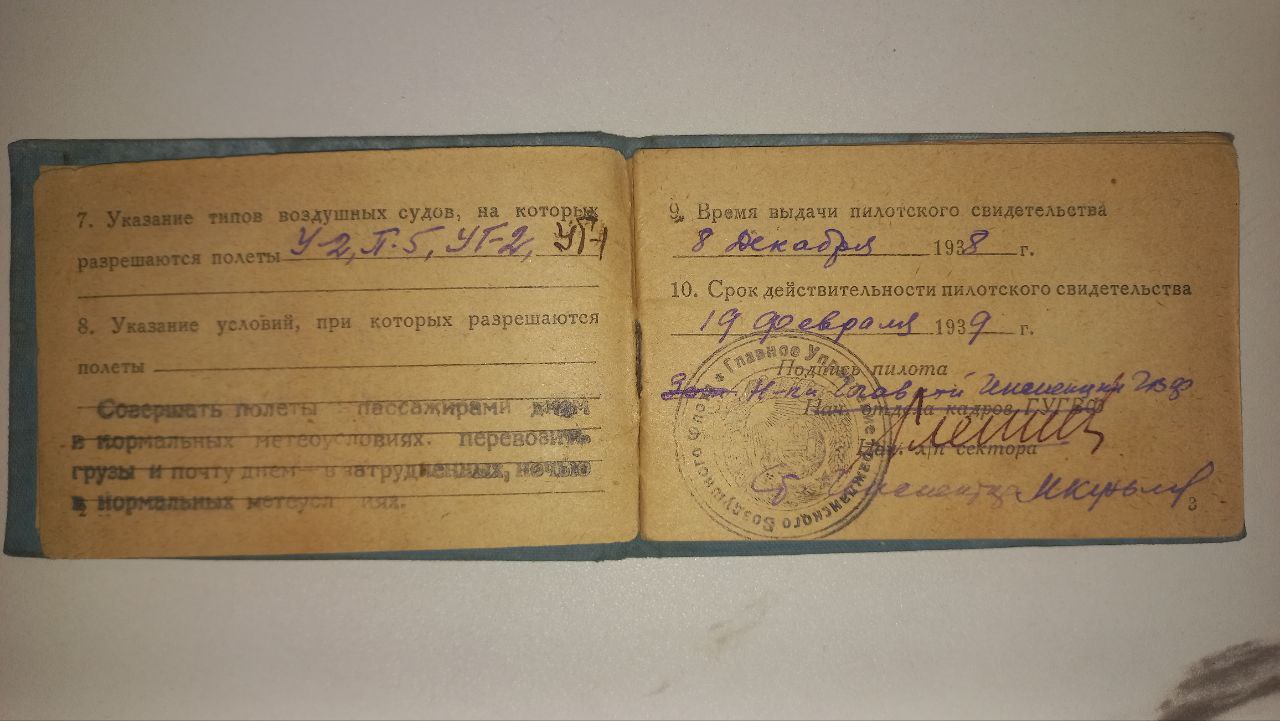 7. Указание типов воздушных судов, на которых
разрешаются полеты У-2, П-5, УТ-2, УТ-1
8. Указание условий, при которых разрешаются
полеты
Совершать полеты пассажирами днем
в нормальных метеоусловиях. перевозить
грузы и почту днем в затрудненных, ночью
в нормальных метеусл иях.
9. Время выдачи пилотского свидетельства
8 декабря 1938 г.
10. Срок действительности пилотского свидетельства
19 февраля 1939 г.
Подпись пилота
Зам. Н-ка Главной Инспекции ГВФ
Нач. отдела кадров ГУГВФ
Нач. л/п сектора
Главное Управление Гражданского Воздушного Фло
3